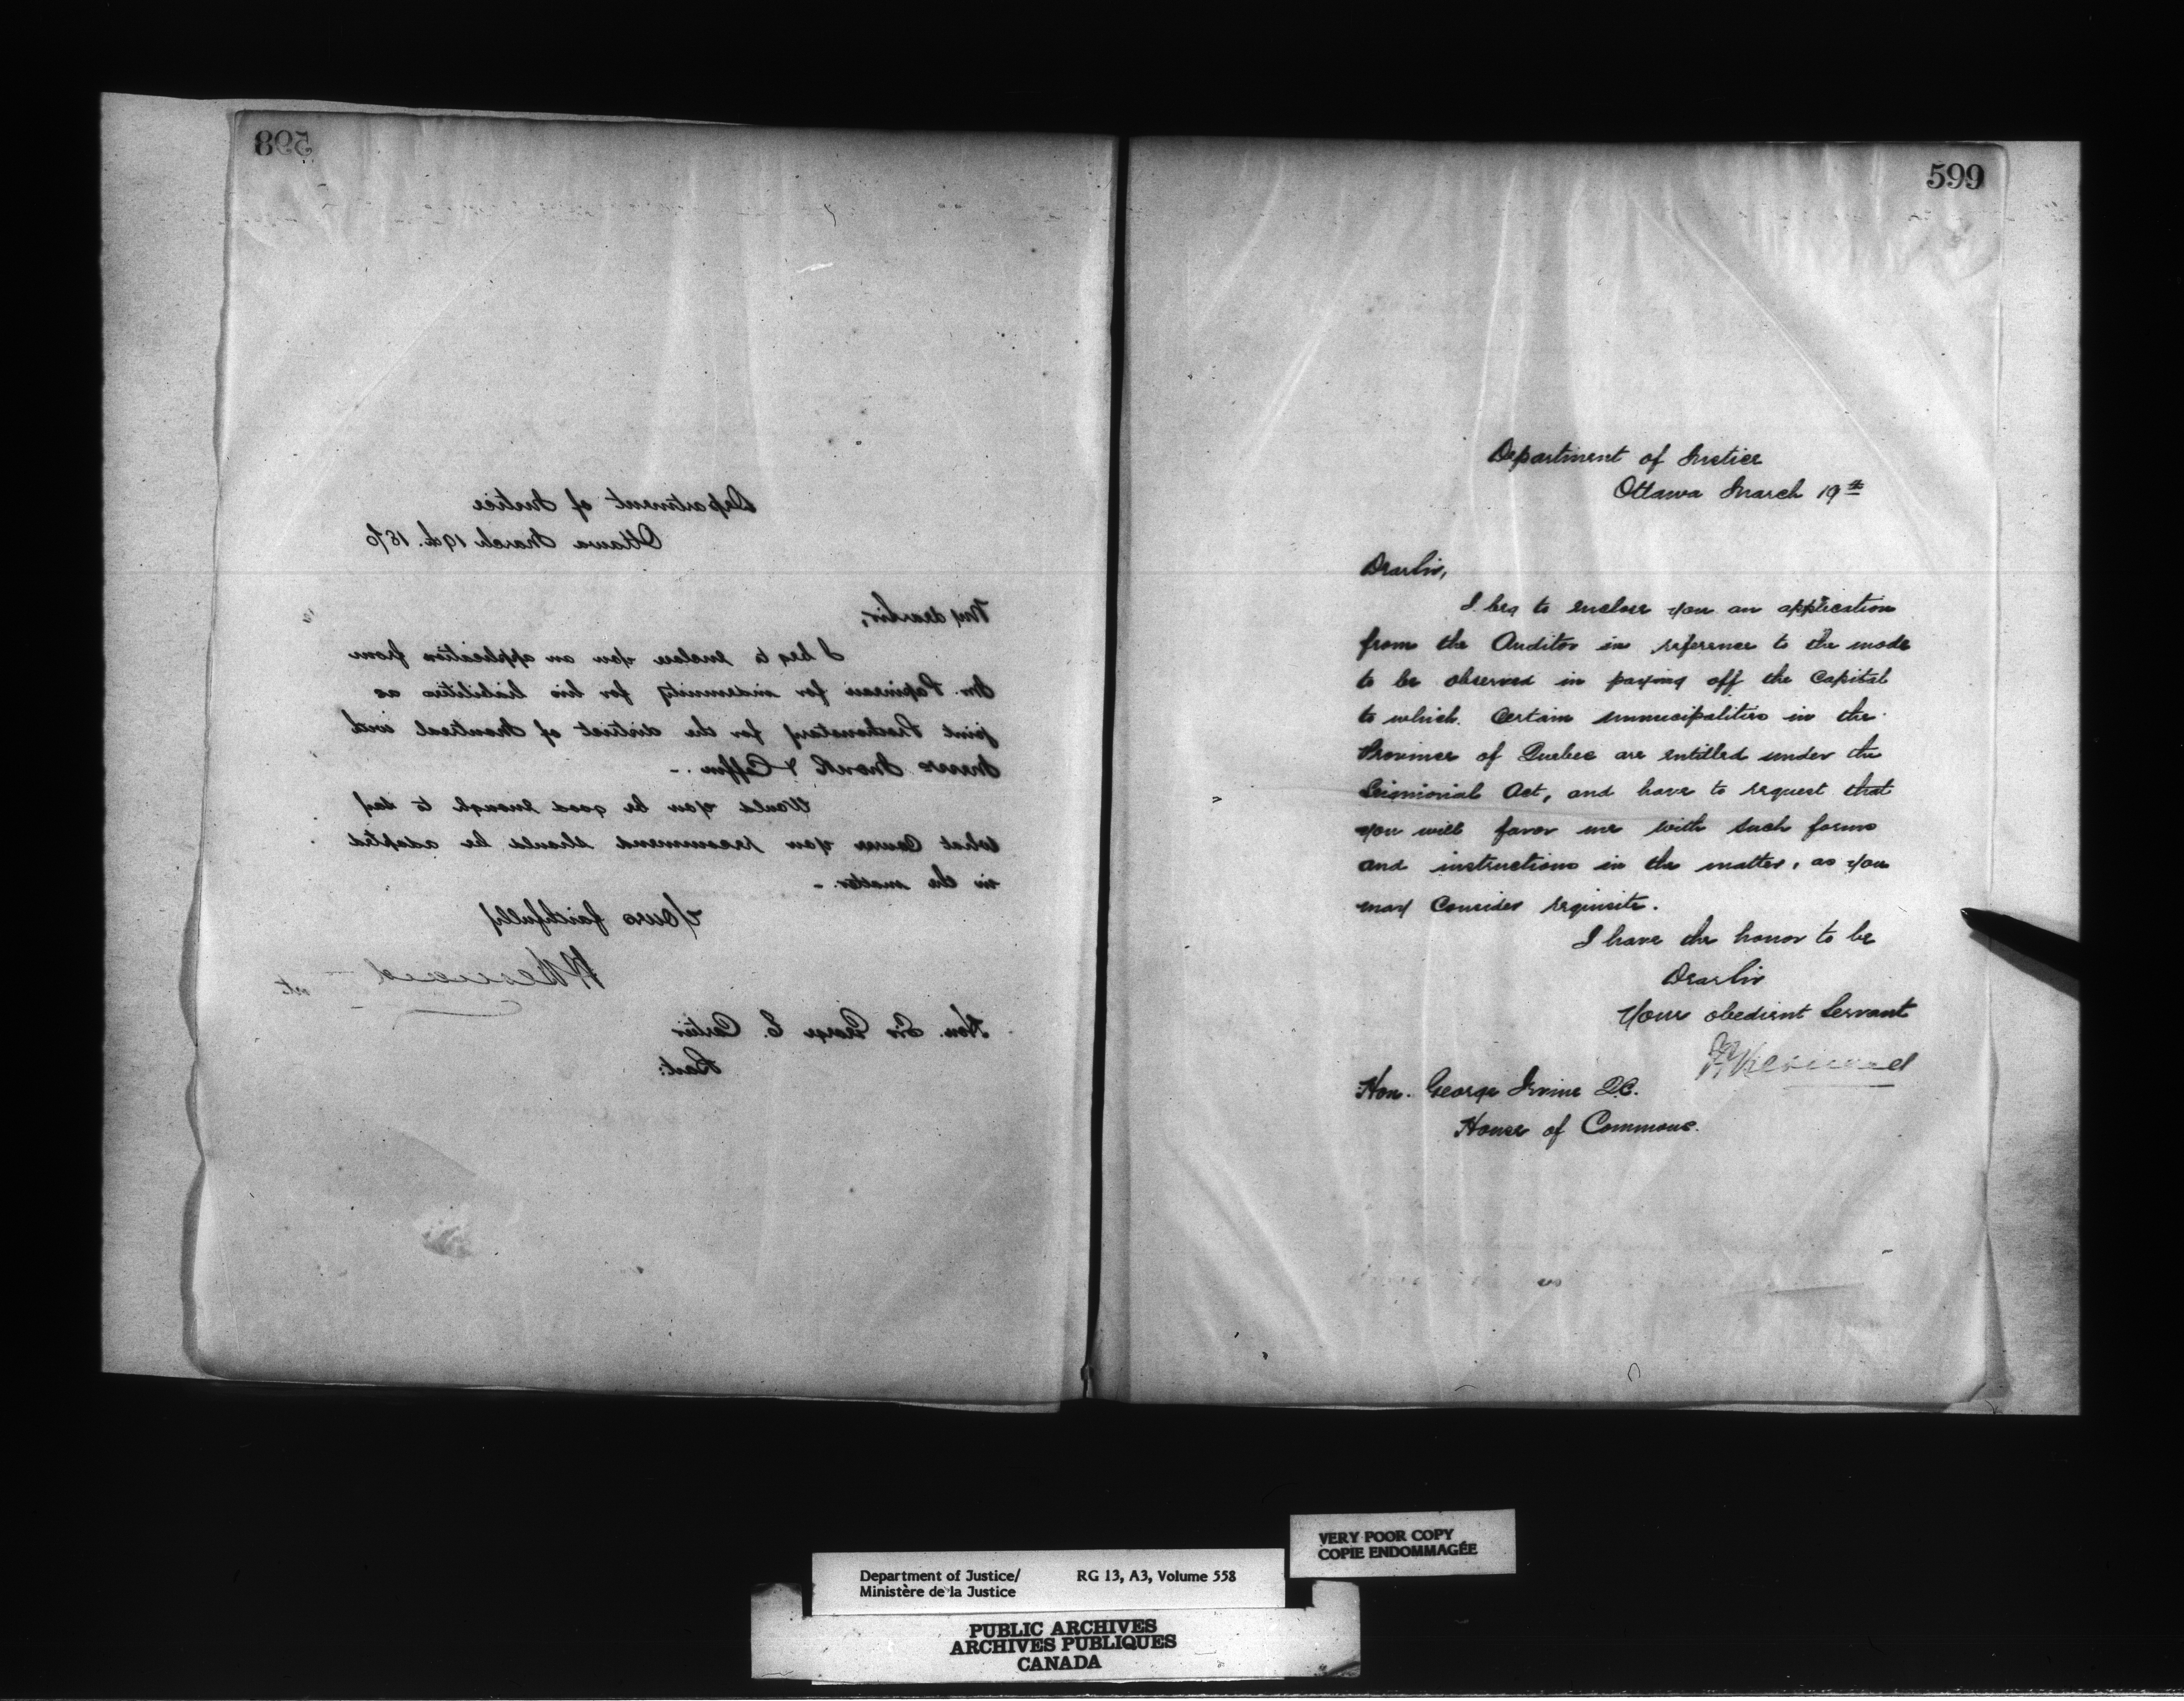 598
Department of Justice
Ottawa March 19th. 1870
My dear Sir,
I beg to enclose you an application from
Mr. Papineau for indemnity for his liabilities as
joint Prothonotary for the district of Montreal with
Messrs Monk & Coffin. -
Would you be good enough to say
what Course you recommend should be adopted
in the matter. -
Yours faithfully
Hon. Sir George E. Cartier
Bart:
599
Department of Justice
Ottawa March 19th
Dear Sir,
I beg to enclose you an application
from the Auditor in reference to the mode
to be observed in paying off the Capital
to which Certain municipalities in the
Province of Quebec are entitled under the
Seigniorial Act, and have to request that
you will favor me with such forms
and instructions in the matter, as you
may Consider requisite.
I have the honor to be
Dear Sir
Your obedient Servant
Hon. George Irvine Q.C.
House of Commons.
VERY POOR COPY
COPIE ENDOMMAGÉE
Department of Justice/ RG 13, A3, Volume 558
Ministère de la Justice
PUBLIC ARCHIVES
ARCHIVES PUBLIQUES
CANADA